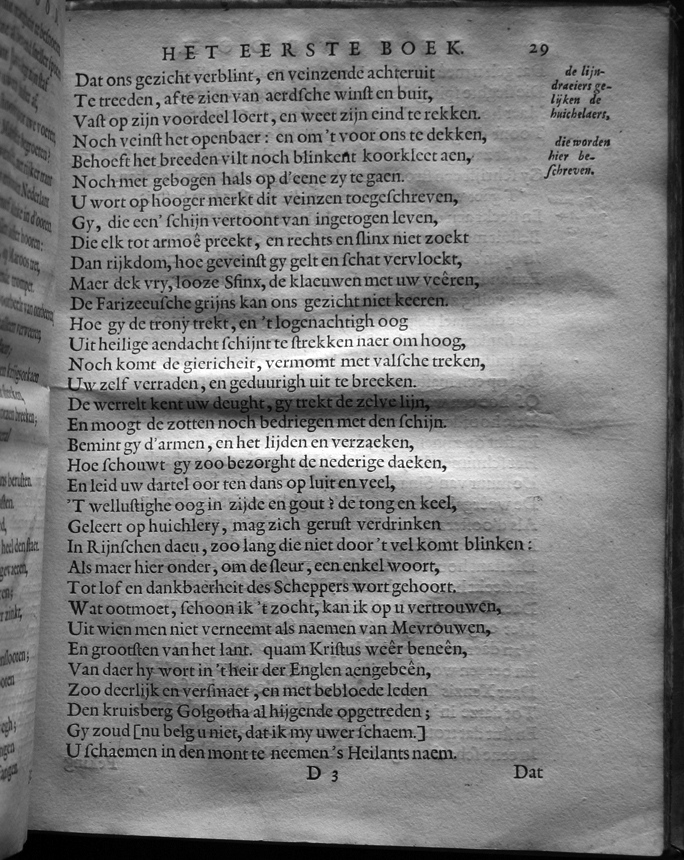 HET EERSTE BOEK. 29
Dat ons gezicht verblint, en veinzende achteruit
Te treeden, afte zien van aerdſche winſt en buit,
Vaſt op zijn voordeel loert, en weet zijn eind te rekken.
Noch veinſt het openbaer: en om 't voor ons te dekken,
Behoeft het breeden vilt noch blinkent koorkleet aen,
Noch met gebogen hals op d'eene zy te gaen.
U wort op hooger merkt dit veinzen toegeſchreven,
Gy, die een' ſchijn vertoont van ingetogen leven,
Die elk tot armoê preekt, en rechts en ſlinx niet zoekt
Dan rijkdom, hoe geveinſt gy gelt en ſchat vervloekt,
Maer dek vry, looze Sfinx, de klaeuwen met uw veêren,
De Farizeeuſche grijns kan ons gezicht niet keeren.
Hoe gy de trony trekt, en 't logenachtigh oog
Uit heilige aendacht ſchijnt te ſtrekken naer om hoog,
Noch komt de giericheit, vermomt met valſche treken,
Uw zelf verraden, en geduurigh uit te breeken.
De werrelt kent uw deught, gy trekt de zelve lijn,
En moogt de zotten noch bedriegen met den ſchijn.
Bemint gy d'armen, en het lijden en verzaeken,
Hoe ſchouwt gy zoo bezorght de nederige daeken,
En leid uw dartel oor ten dans op luit en veel,
'T welluſtighe oog in zijde en gout? de tong en keel,
Geleert op huichlery, mag zich geruſt verdrinken
In Rijnſchen daeu, zoo lang die niet door 't vel komt blinken:
Als maer hier onder, om de ſleur, een enkel woort,
Tot lof en dankbaerheit des Scheppers wort gehoort.
Wat ootmoet, ſchoon ik 't zocht, kan ik op u vertrouwen,
Uit wien men niet verneemt als naemen van Mevrouwen,
En grootſten van het lant. quam Kriſtus weêr beneên,
Van daer hy wort in 't heir der Englen aengebeên,
Zoo deerlijk en verſmaet, en met bebloede leden
Den kruisberg Golgotha al hijgende opgetreden;
Gy zoud [nu belg u niet, dat ik my uwer ſchaem.]
U ſchaemen in den mont te neemen 's Heilants naem.
D 3 Dat
de lijn-
draeiers ge-
lijken de
huichelaers,
die worden
hier be-
ſchreven.